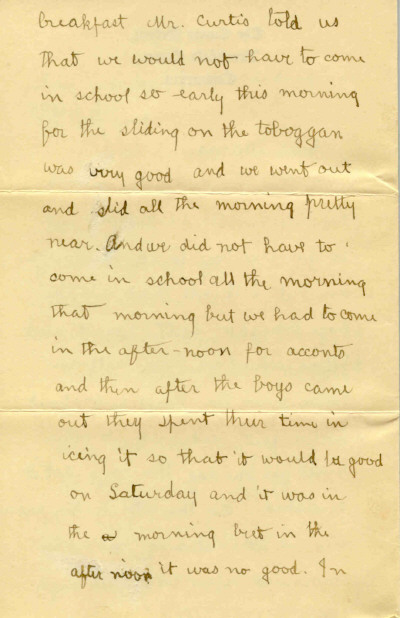 breakfast Mr. Curtis told us
that we would not have to come
in school so early this morning
for the sliding on the toboggan
was very good and we went out
and slid all the morning pretty
near. And we did not have to
come in school all the morning
that morning but we had to come
in the after-noon for acconts
and then after the boys came
out they spent their time in
iceing it so that it would be good
on Saturday and it was in
the a morning but in the
after noon it was no good. In